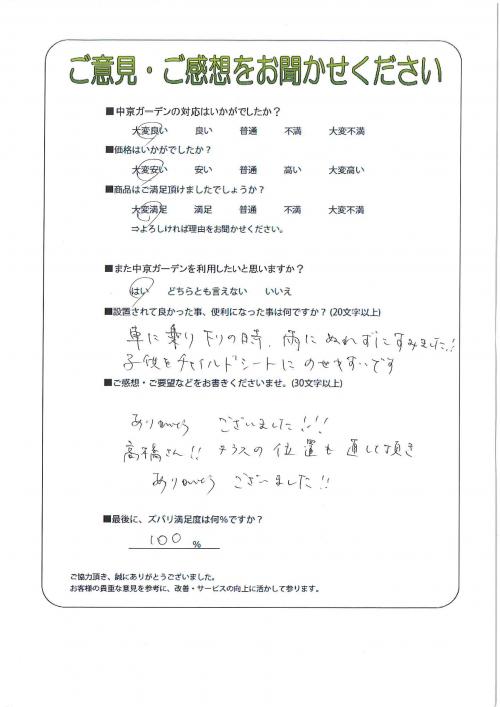 ご意見・ご感想をお聞かせください
■中京ガーデンの対応はいかがでしたか？
大変良い 良い 普通 不満 大変不満
■価格はいかがでしたか？
大変安い 安い 普通 高い 大変高い
■商品はご満足頂けましたでしょうか？
大変満足 満足 普通 不満 大変不満
⇒よろしければ理由をお聞かせください。
■また中京ガーデンを利用したいと思いますか？
はい どちらとも言えない いいえ
■設置されて良かった事、便利になった事は何ですか？(20文字以上)
車に乗り下りの時、雨にぬれずにすみました!!
子供をチャイルドシートにのせやすいです
■ご感想・ご要望などをお書きくださいませ。(30文字以上)
ありがとう ございました!!!
高橋さん!! テラスの位置も直して頂き
ありがとう ございました!!
■最後に、ズバリ満足度は何％ですか？
100 %
ご協力頂き、誠にありがとうございました。
お客様の貴重な意見を参考に、改善・サービスの向上に活かして参ります。